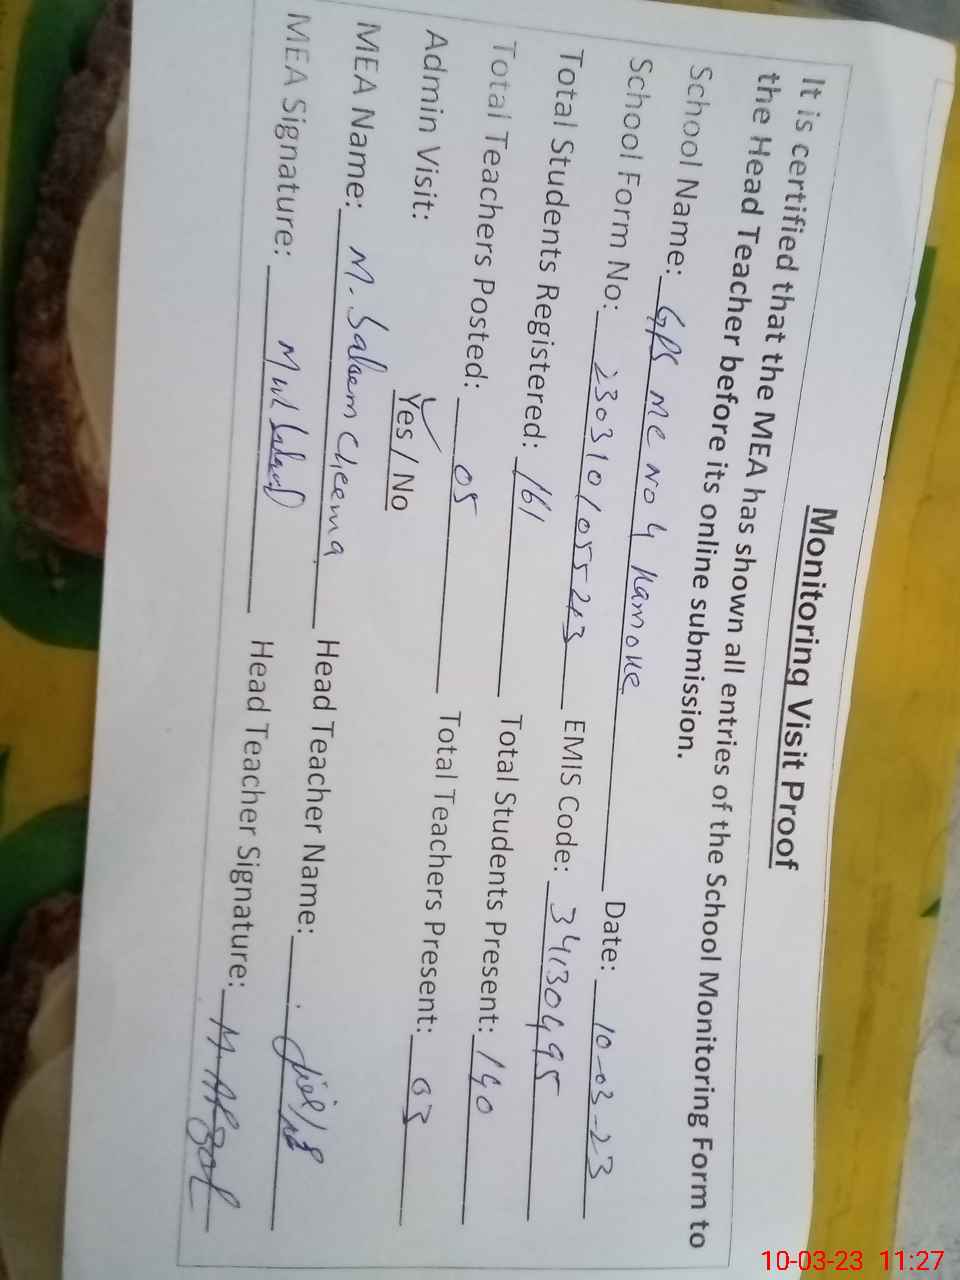 Monitoring Visit Proof
It is certified that the MEA has shown all entries of the School Monitoring Form to
the Head Teacher before its online submission.
School Name: GPS MC No 4 Kamoke Date: 10-03-23
School Form No: 2303101055213 EMIS Code: 34130495
Total Students Registered: 161 Total Students Present: 140
Total Teachers Posted: 05 Total Teachers Present: 03
Admin Visit: Yes / No
MEA Name: M. Saleem Cheema Head Teacher Name:
MEA Signature: Head Teacher Signature: M. Afzal
10-03-23 11:27